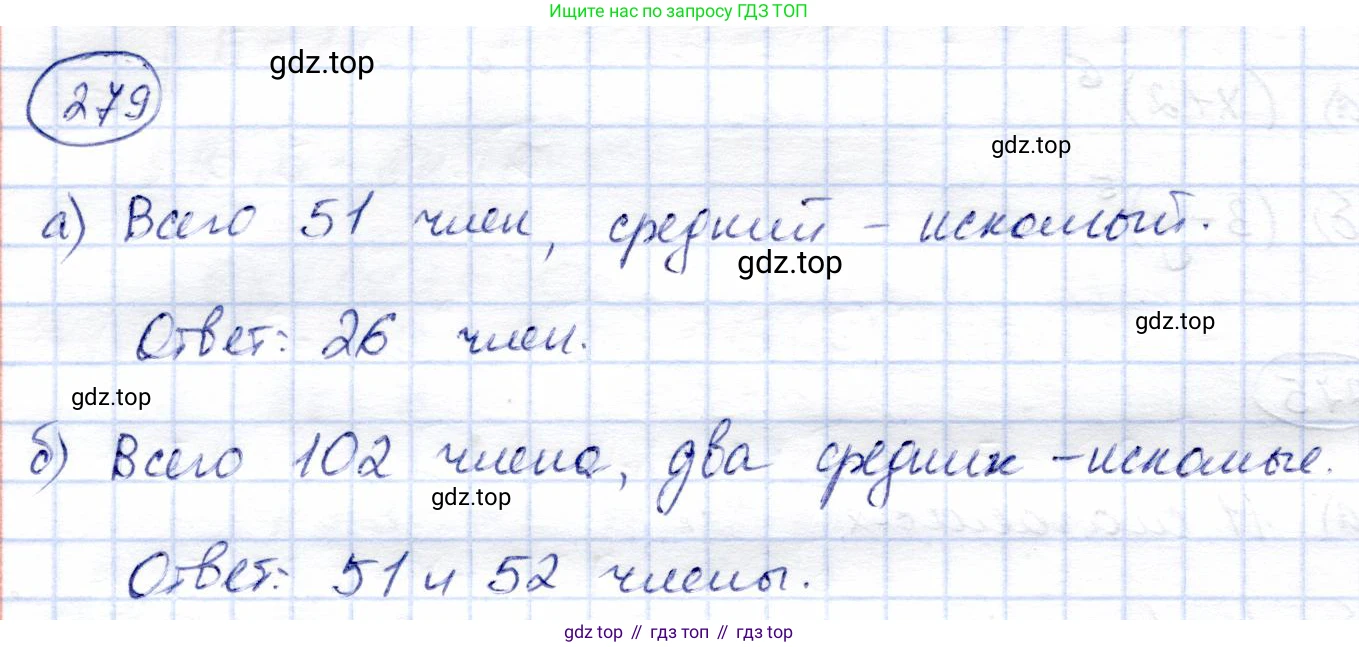 Ищите нас по запросу ГДЗ ТОП
gdz.top
279
gdz.top
а) Всего 51 член, средний – искомый.
gdz.top
Ответ: 26 член.
gdz.top
gdz.top
б) Всего 102 члена, два средних – искомые.
gdz.top
Ответ: 51 и 52 члены.
gdz top // гдз топ // гдз top